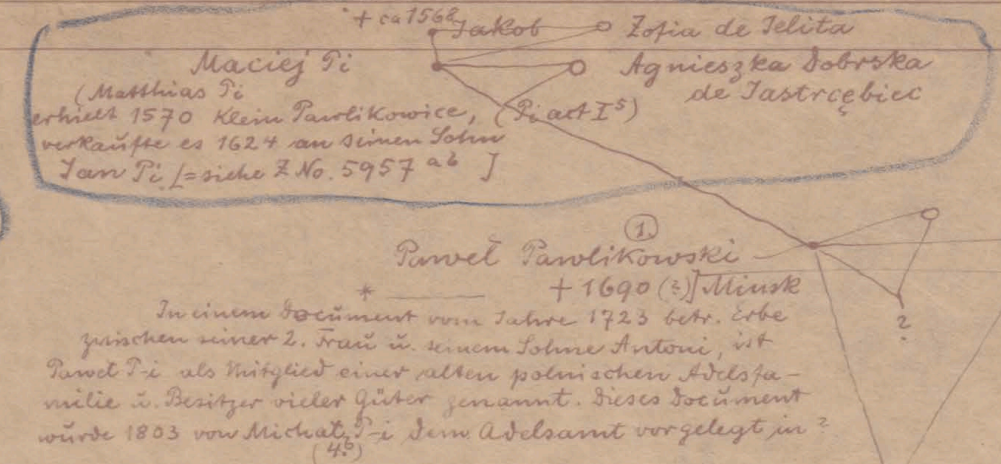 + ca 1568 Jakob Zofia de Jelita
Maciej Pi Agnieszka Dobrska
(Matthias Pi de Jastrcębiec
erhielt 1570 Klein Pawlikowice, (Pi act I s)
verkaufte es 1624 an seinen Sohn
Jan Pi [= siehe Z No. 5957 ab ]
1.
Paweł Pawlikowski
* + 1690 (?)] Minsk
?
In einem Document vom Jahre 1723 betr. Erbe
zwischen seiner 2. Frau u. seinem Sohne Antoni, ist
Paweł P-i als Mitglied einer alten polnischen Adelsfa-
milie u. Besitzer vieler Güter genannt. Dieses Document
wurde 1803 von Michał P-i dem Adelsamt vorgelegt in ?
(4.b)